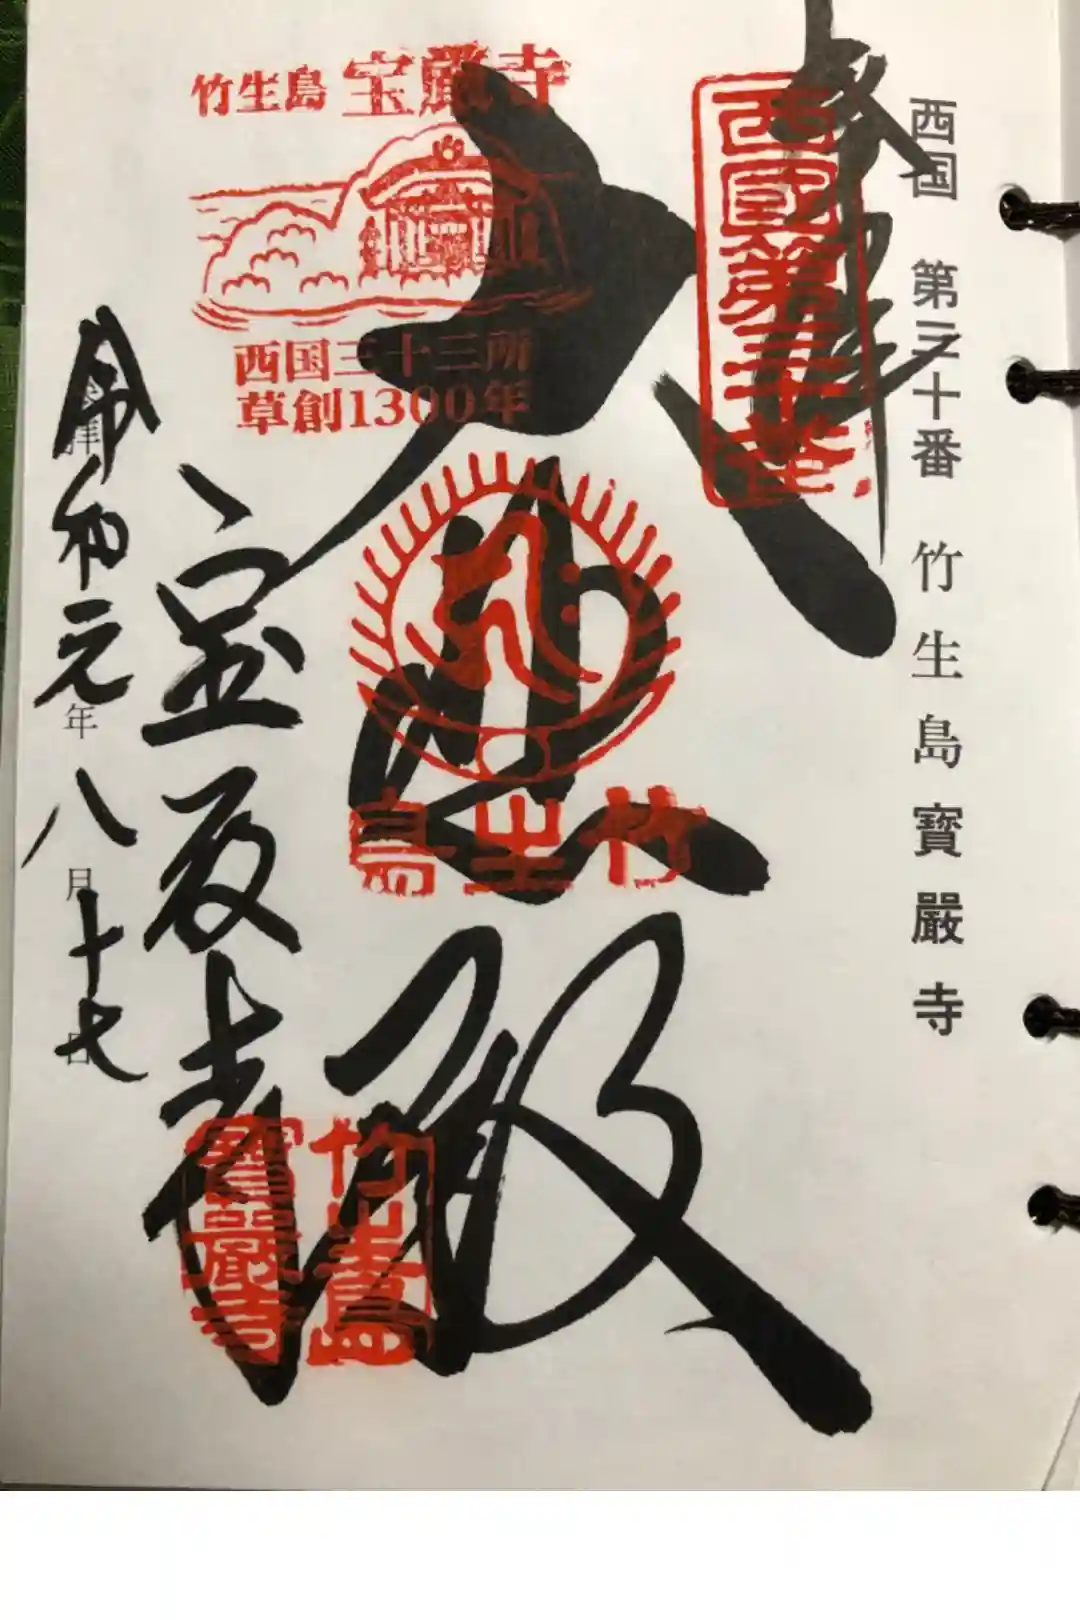 西国 第三十番 竹生島寶厳寺
奉拝
西國第三十番
大悲殿
竹生島 宝厳寺
西国三十三所
草創1300年
竹生島
竹生島
寶嚴寺
宝厳寺
令和元年八月十七日